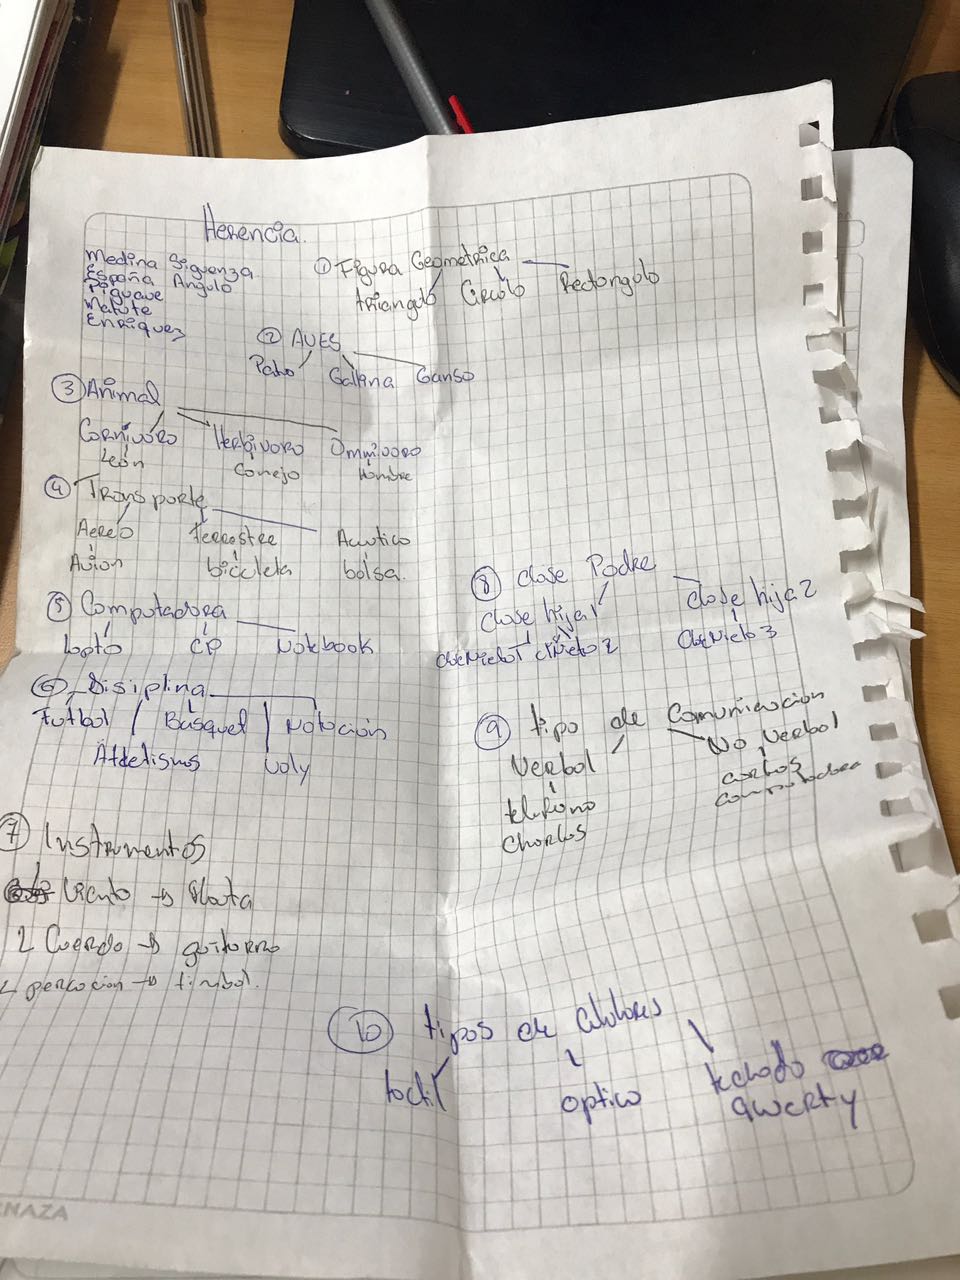 Herencia.
Medina Siguenza
España Angulo
Piguave
Matute
Enriquez
① Figura Geometrica
triangulo Circulo Rectangulo
② AVES
Pato Gallina Ganso
③ Animal
Carnivoro Herbivoro Omnivoro
León Conejo Hombre
④ Transporte
Aereo terrestre Acutico
Avion bicicleta bolsa.
⑤ Computadora
CP Notebook
⑥ Disiplina
Futbol Básquet Natación
Atletismo Voly
⑦ Instrumentos
Viento → flauta
2 Cuerda → guitarra
percocion → timbal.
⑧ Clase Padre
clase hija1 Clase hija2
clNieto 2 Nieto 3
⑨ tipo de Comunicacion
Verbal No Verbal
telefono cartas
charlas computadora
⑩ tipos de Celulares
tactil optico
qwerty
ENAZA